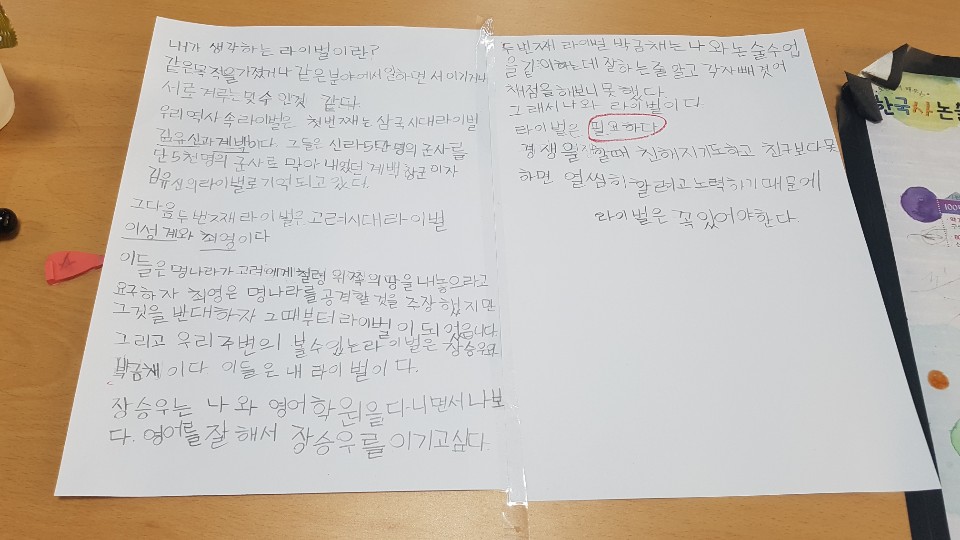 내가 생각하는 라이벌이란?
같은목적을가졌거나 같은 분야에서일하면서 이기거나
서로 겨루는맞수 인것 같다
우리 역사 속 라이벌은 첫번째는 삼국시대라이벌
김유신과 계백이다. 그들은 신라5만 명의 군사를
단 5천 명의 군사로 막아 내었던 계백 장군이자
김유신의라이벌로기억 되고 있다.
그다음 두번째 라이벌은 고려시대라이벌
이성계와 최영이다
이들은 명나라가 고려에게 철령 위쪽의 땅을 내놓으라고
요구하자 최영은 명나라를 공격할 것을 주장 했지만
그것을 반대하자 그때부터 라이벌이 되었습니다
그리고 우리 주변의 볼수있는라이벌은 장승우와
박금채이다 이들은 내 라이벌이다.
장승우는 나와 영어학원을다니면서나보
다. 영어를 잘해서 장승우를 이기고싶다.
두번째 라이벌 박금채는 나와논술수업
을 같이하는데 잘하는줄 알고 각자빼겼어
채점을 해보니 못했다
그래서 나와 라이벌이다.
라이벌은 필요하다
경쟁을 할때 친해지기도하고 친구보다못
하면 열씸히 할려고노력하기 때문에
라이벌은 꼭 있어야한다
한국사논술
100